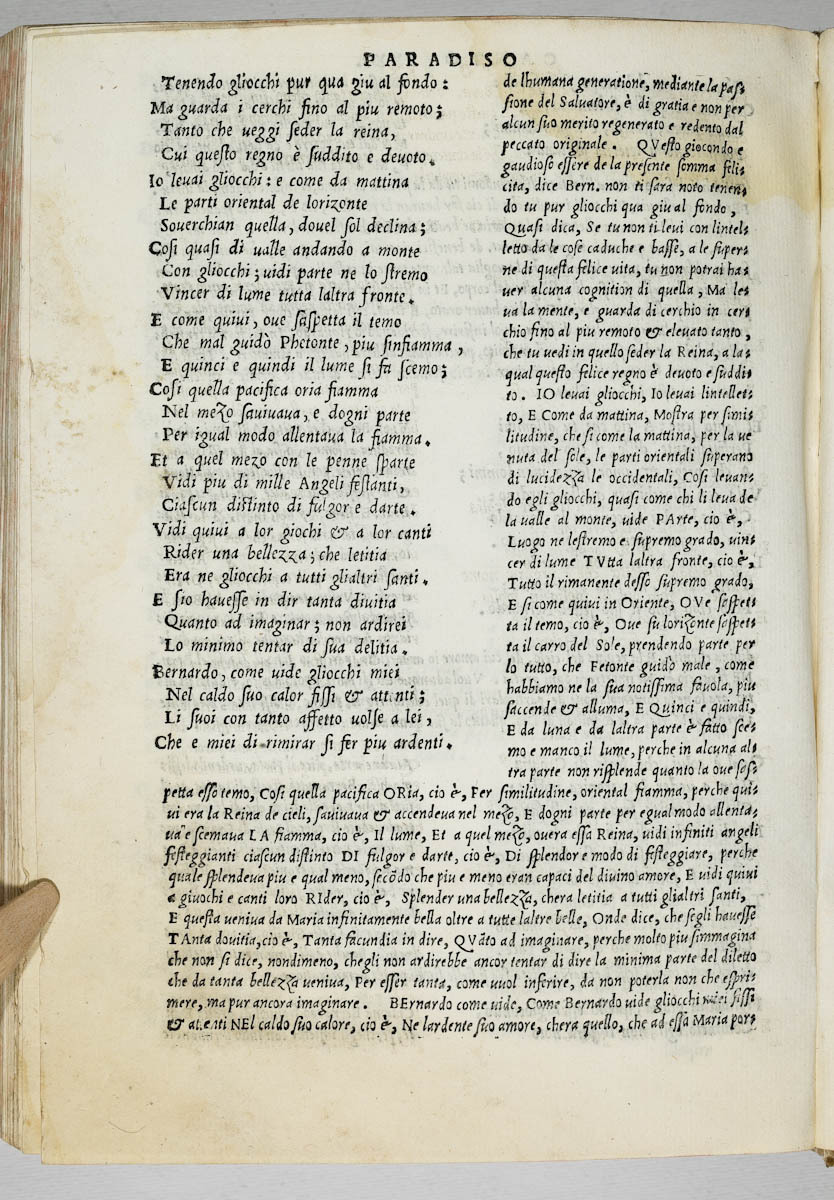 PARADISO
Tenendo gliocchi pur qua giu al fondo:
Ma guarda i cerchi fino al piu remoto;
Tanto che ueggi seder la reina,
Cui questo regno è suddito e deuoto.
Io leuai gliocchi: e come da mattina
Le parti oriental de lorizonte
Souerchian quella, douel sol declina;
Cosi quasi di ualle andando a monte
Con gliocchi; uidi parte ne lo stremo
Vincer di lume tutta laltra fronte.
E come quiui, oue saspetta il temo
Che mal guidò Phetonte, piu sinfiamma,
E quinci e quindi il lume si fa scemo;
Cosi quella pacifica oria fiamma
Nel mezo sauiuaua, e dogni parte
Per igual modo allentaua la fiamma.
Et a quel mezo con le penne sparte
Vidi piu di mille Angeli festanti,
Ciascun distinto di fulgor e darte.
Vidi quiui a lor giochi & a lor canti
Rider una bellezza; che letitia
Era ne gliocchi a tutti glialtri santi.
E sio hauesse in dir tanta diuitia
Quanto ad imaginar; non ardirei
Lo minimo tentar di sua delitia.
Bernardo, come uide gliocchi miei
Nel caldo suo calor fissi & attenti;
Li suoi con tanto affetto uolse a lei,
Che e miei di rimirar si fer piu ardenti.
de lhumana generatione, mediante la pas-
sione del Saluatore, è di gratia e non per
alcun suo merito regenerato e redento dal
peccato originale. QVesto giocondo e
gaudioso essere de la presente somma feli-
cita, dice Bern. non ti sara noto tenen-
do tu pur gliocchi qua giu al fondo,
Quasi dica, Se tu non ti leui con lintel-
letto da le cose caduche e basse, a le super-
ne di questa felice uita, tu non potrai ha-
uer alcuna cognition di quella, Ma le-
ua la mente, e guarda di cerchio in cer-
chio fino al piu remoto & eleuato tanto,
che tu uedi in quello seder la Reina, a la-
qual questo felice regno è deuoto e suddi-
to. IO leuai gliocchi, Io leuai lintellet-
to, E Come da mattina, Mostra per simi-
litudine, che si come la mattina, per la ue
nuta del sole, le parti orientali superano
di lucidezza le occidentali, Cosi leuan-
do egli gliocchi, quasi come chi li leua de
la ualle al monte, uide PArte, cio è,
Luogo ne lestremo e supremo grado, uin-
cer di lume TVtta laltra fronte, cio è,
Tutto il rimanente desso supremo grado,
E si come quiui in Oriente, OVe sospet-
ta il temo, cio è, Oue su lorizonte sospet-
ta il carro del Sole, prendendo parte per
lo tutto, che Fetonte guidò male, come
habbiamo ne la sua notissima fauola, piu
saccende & alluma, E Quinci e quindi,
E da luna e da laltra parte è fatto sce-
mo e manco il lume, perche in alcuna al-
tra parte non risplende quanto la oue sos-
petta esso temo, Cosi quella pacifica ORia, cio è, Per similitudine, oriental fiamma, perche qui-
ui era la Reina de cieli, sauiuaua & accendeua nel mezo, E dogni parte per egual modo allenta-
ua e scemaua LA fiamma, cio è, Il lume, Et a quel mezo, ouera essa Reina, uidi infiniti angeli
festeggianti ciascun distinto DI fulgor e darte, cio è, Di splendor e modo di festeggiare, perche
quale splendeua piu e qual meno, secōdo che piu e meno eran capaci del diuino amore, E uidi quiui
a giuochi e canti loro RIder, cio è, Splender una bellezza, chera letitia a tutti glialtri santi,
E questa ueniua da Maria infinitamente bella oltre a tutte laltre belle, Onde dice, che segli hauesse
TAnta douitia, cio è, Tanta facundia in dire, QVāto ad imaginare, perche molto piu simmagina
che non si dice, nondimeno, chegli non ardirebbe ancor tentar di dire la minima parte del diletto
che da tanta bellezza ueniua, Per esser tanta, come uuol inferire, da non poterla non che espri-
mere, ma pur ancora imaginare. BErnardo come uide, Come Bernardo uide gliocchi miei fissi
& attenti NEl caldo suo calore, cio è, Ne lardente suo amore, chera quello, che ad essa Maria por-